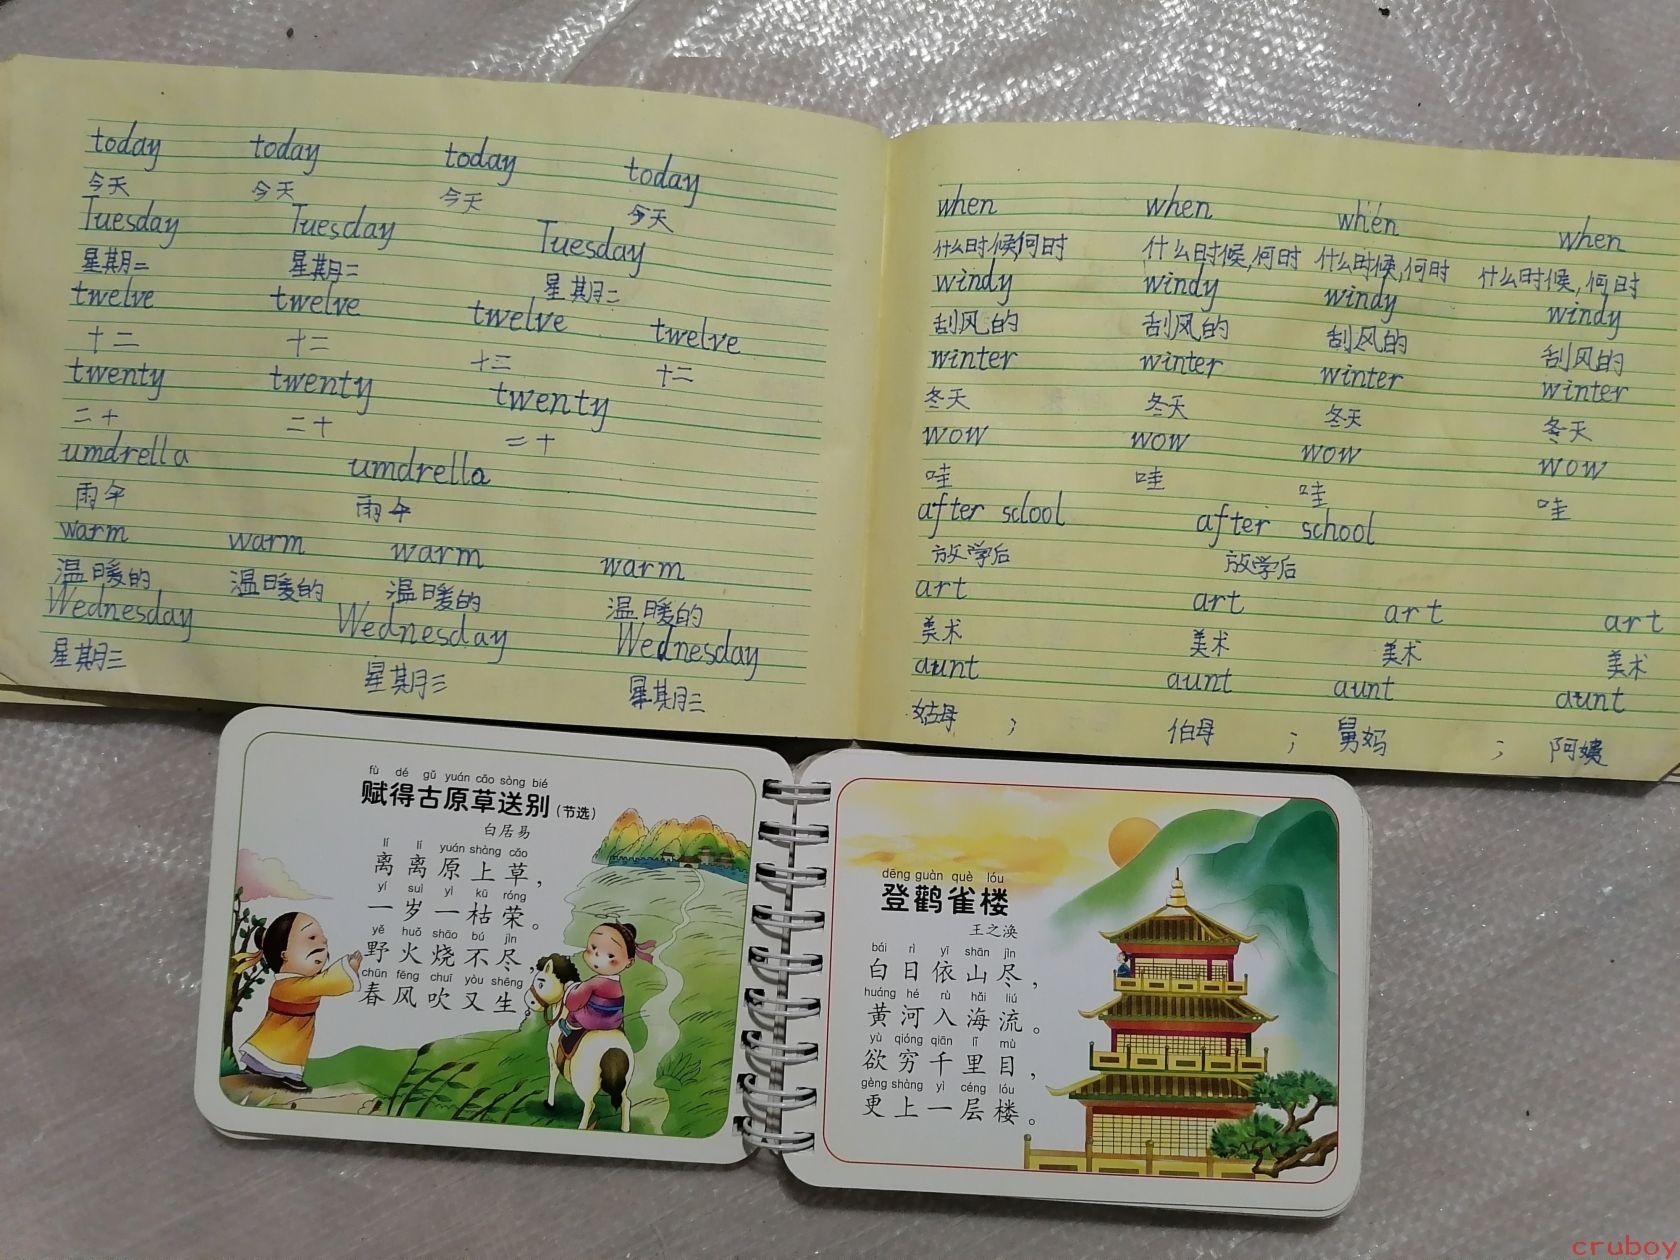 today today today today
今天 今天 今天 今天
Tuesday Tuesday Tuesday
星期二 星期二 星期二
twelve twelve twelve twelve
十二 十二 十三 十二
twenty twenty twenty
二十 二十 二十
umdrella umdrella
雨伞 雨伞
warm warm warm warm
温暖的 温暖的 温暖的 温暖的
Wednesday Wednesday Wednesday
星期三 星期三 星期三
when when when when
什么时候,何时 什么时候,何时 什么时候,何时 什么时候,何时
windy windy windy windy
刮风的 刮风的 刮风的 刮风的
winter winter winter winter
冬天 冬天 冬天 冬天
wow wow wow wow
哇 哇 哇 哇
after sclool after school
放学后 放学后
art art art art
美术 美术 美术 美术
aunt aunt aunt aunt
姑母 ; 伯母 ; 舅妈 ; 阿姨
fù dé gǔ yuán cǎo sòng bié
赋得古原草送别(节选)
白居易
lí lí yuán shàng cǎo
离离原上草,
yí suì yì kū róng
一岁一枯荣。
yě huǒ shāo bú jìn
野火烧不尽,
chūn fēng chuī yòu shēng
春风吹又生。
dēng guàn què lóu
登鹳雀楼
王之涣
bái rì yī shān jìn
白日依山尽,
huáng hé rù hǎi liú
黄河入海流。
yù qióng qiān lǐ mù
欲穷千里目,
gèng shàng yì céng lóu
更上一层楼。
cruboy